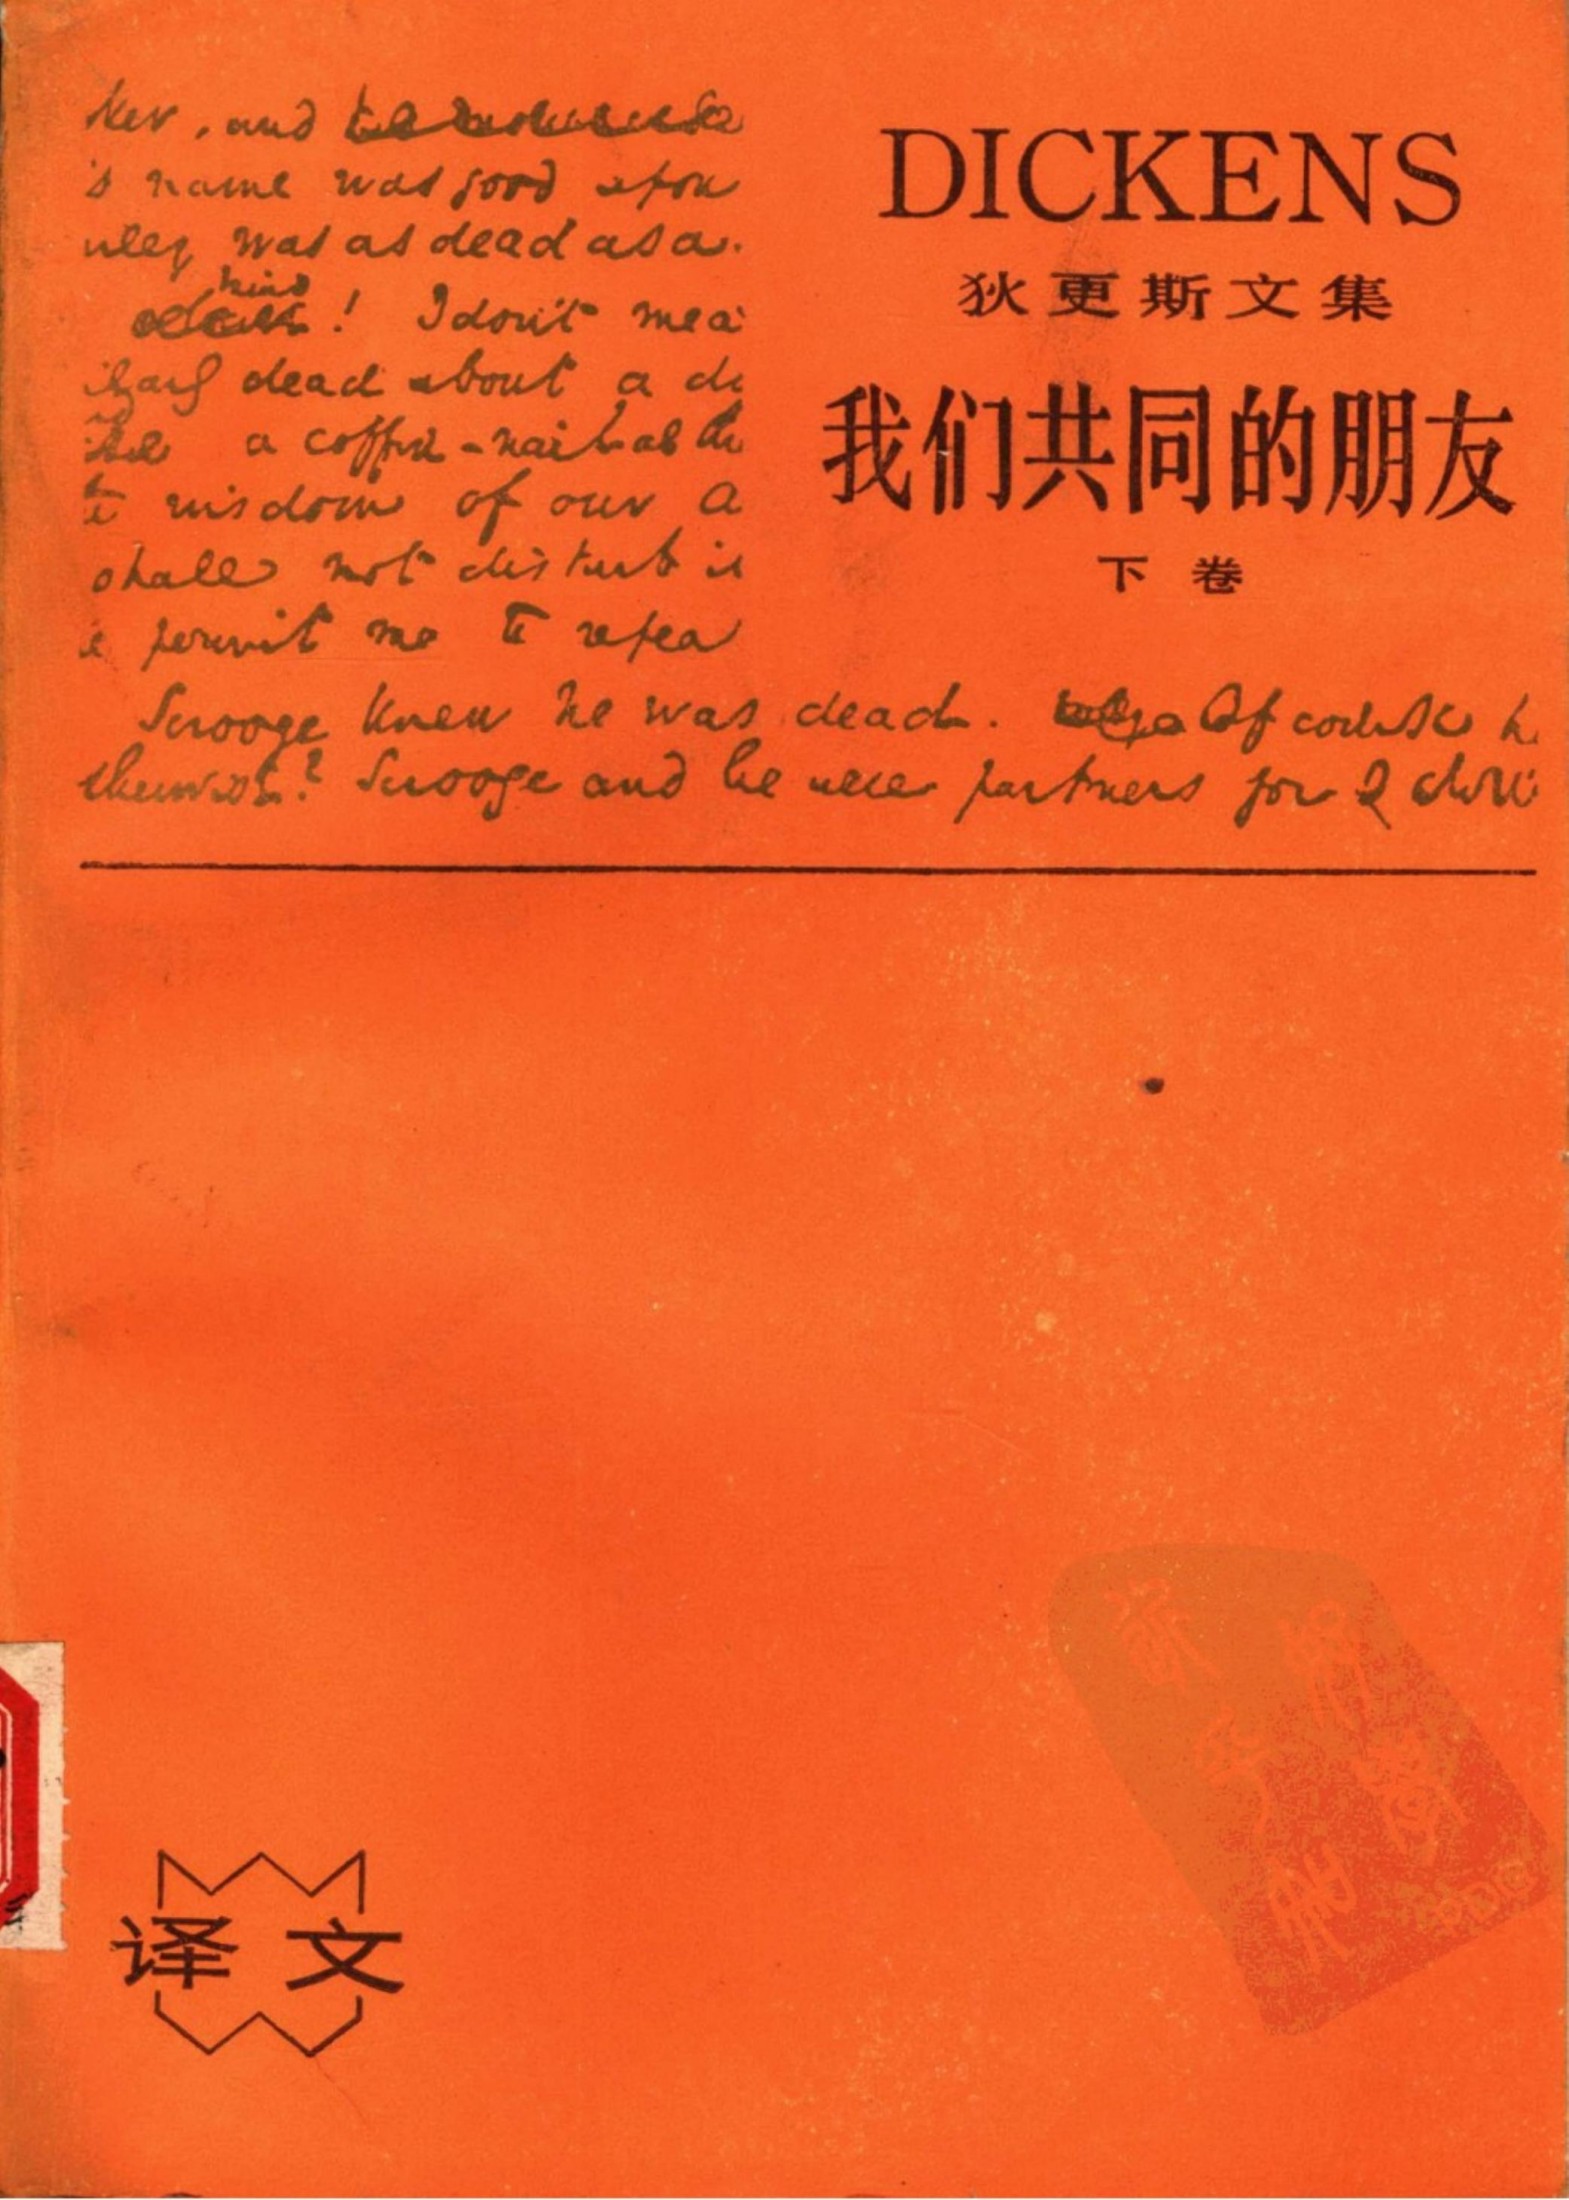 DICKENS
狄更斯文集
我们共同的朋友
下卷
ker, and
's name was good upon
uley was as dead as a
mind
! I don't mea
dead about a d
a coffin-nail as th
wisdom of our a
shall not disturb i
permit me to repea
Scrooge knew he was dead. Of course h
otherwise? Scrooge and he were partners for I don't
译文